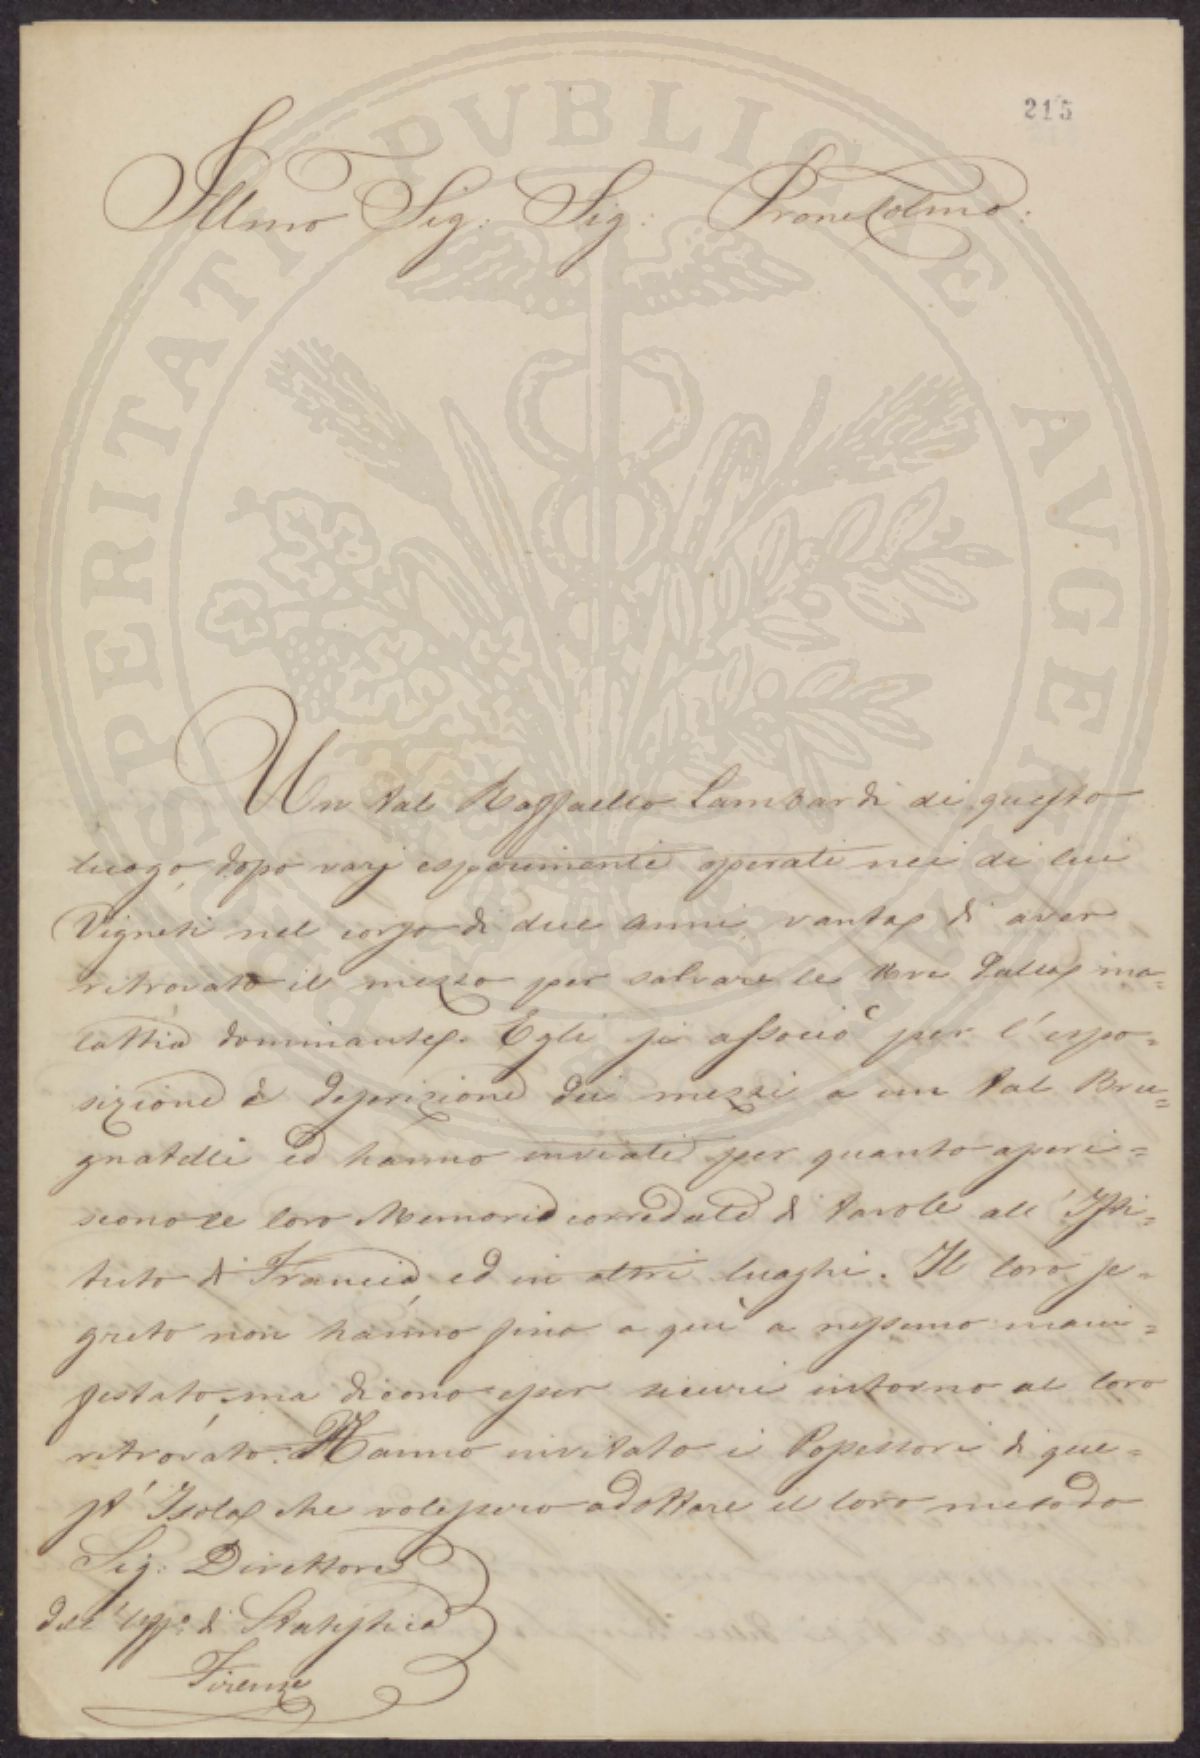 215
Illmo Sig: Sig: Pron: Colmo:
Un tal Raffaello Lambardi di questo
luogo, dopo varj esperimenti operati nei di lui
Vigneti nel corso di due anni, vanta di aver
ritrovato il mezzo per salvare le Uve dalla ma=
lattia dominante. Egli si associò per l'espo=
sizione e descrizione dei mezzi a un tal Bru=
gnatelli ed hanno inviate per quanto aseri=
scono le loro Memorie corredate di tavole all'Isti=
tuto di Francia, ed in altri luoghi. Il loro se=
greto non hanno sino a qui a nessuno mani=
festato, ma dicono esser sicuri intorno al loro
ritrovato. Hanno invitato i Possessori di que=
st'Isola che volessero adottare il loro metodo
Sig: Direttore
dell'Uff.o di Statistica
Firenze
PROSPERITATI PVBLICAE AVGENDAE